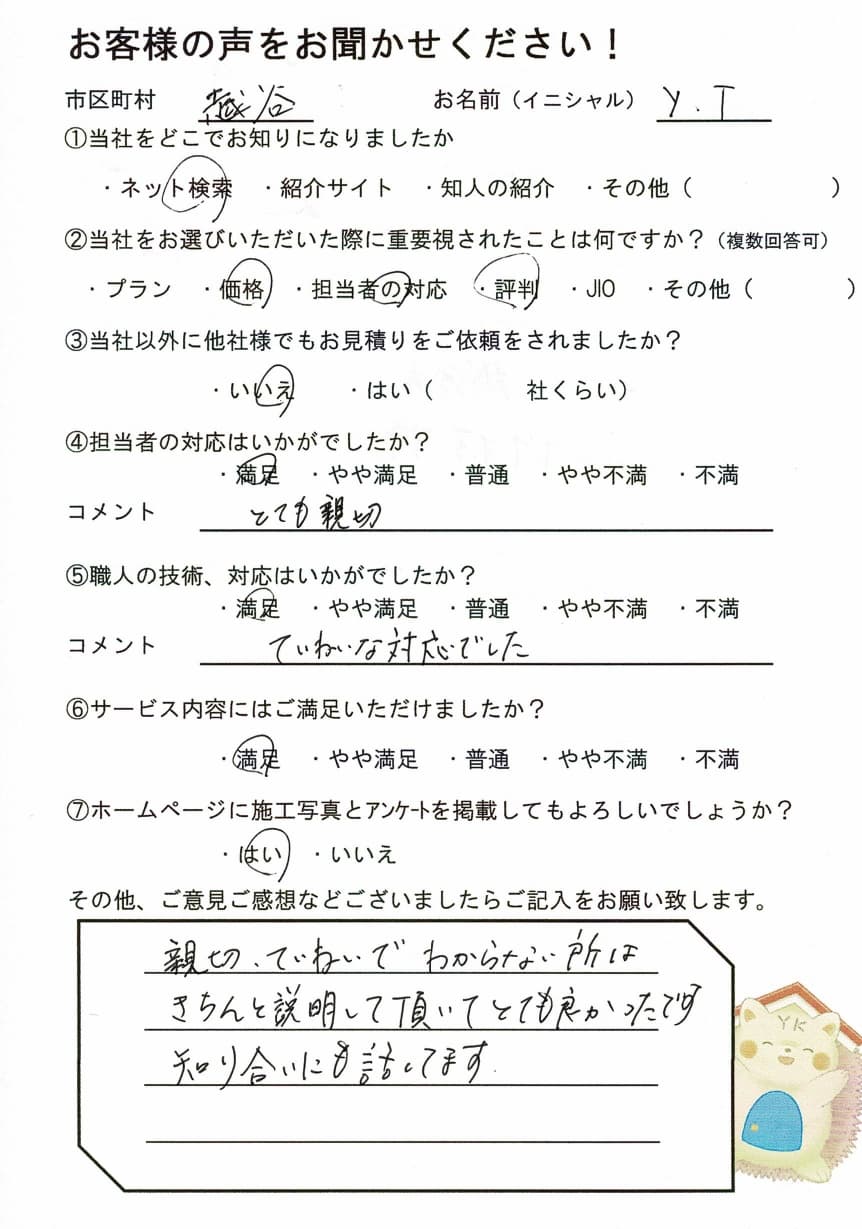 お客様の声をお聞かせください！
市区町村 越谷 お名前（イニシャル） Y.T
①当社をどこでお知りになりましたか
・ネット検索 ・紹介サイト ・知人の紹介 ・その他（ ）
②当社をお選びいただいた際に重要視されたことは何ですか？（複数回答可）
・プラン ・価格 ・担当者の対応 ・評判 ・JIO ・その他（ ）
③当社以外に他社様でもお見積りをご依頼をされましたか？
・いいえ ・はい（ 社くらい）
④担当者の対応はいかがでしたか？
・満足 ・やや満足 ・普通 ・やや不満 ・不満
コメント とても親切
⑤職人の技術、対応はいかがでしたか？
・満足 ・やや満足 ・普通 ・やや不満 ・不満
コメント ていねいな対応でした
⑥サービス内容にはご満足いただけましたか？
・満足 ・やや満足 ・普通 ・やや不満 ・不満
⑦ホームページに施工写真とｱﾝｹｰﾄを掲載してもよろしいでしょうか？
・はい ・いいえ
その他、ご意見ご感想などございましたらご記入をお願い致します。
親切、ていねいで わからない所は
きちんと説明して頂いてとても良かったです
知り合いにも話してます.
YK